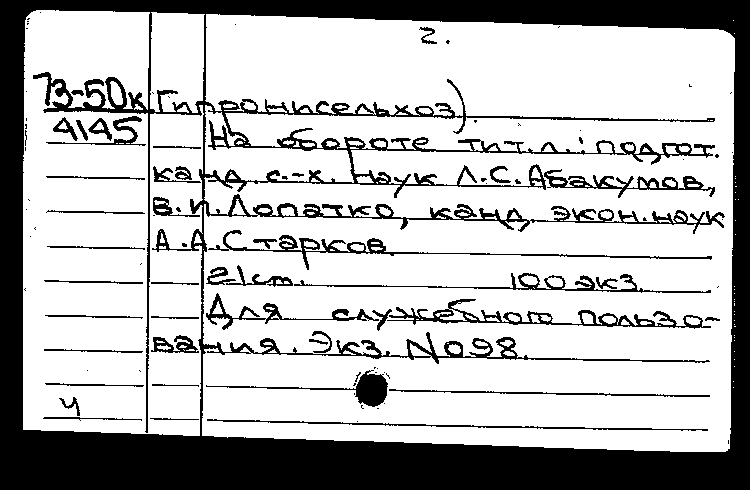 2.
73-50к Гипронисельхоз).
4145 На обороте тит.л.: подгот.
канд. с.-х. наук Л.С.Абакумов,
В.П.Лопатко, канд. экон.наук
А.А.Старков.
21см. 100 экз.
Для служебного пользо-
вания. Экз. №98.
ч